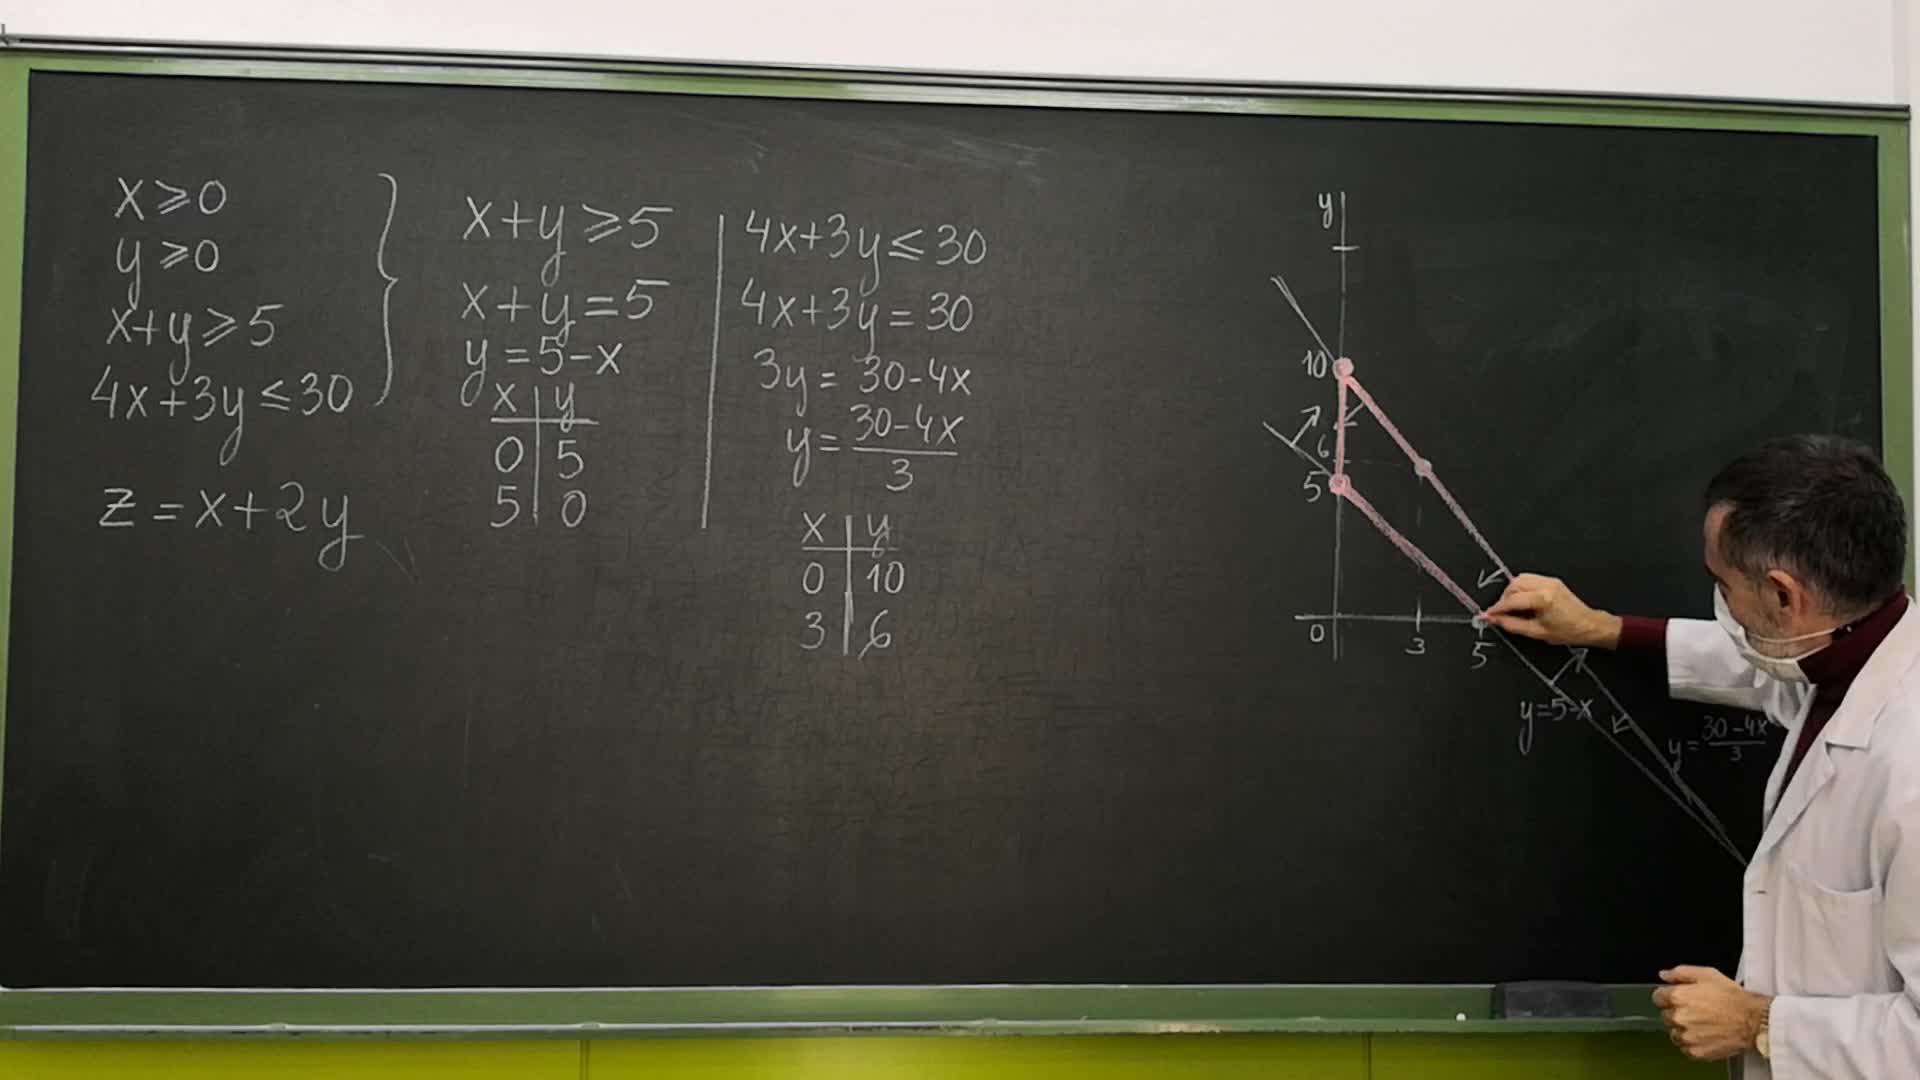 x ⩾ 0
y ⩾ 0
x+y ⩾ 5
4x+3y ≤ 30
z = x+2y
x+y ⩾ 5
x+y = 5
y = 5-x
x | y
0 | 5
5 | 0
4x+3y ≤ 30
4x+3y = 30
3y = 30-4x
y = 30-4x
3
x | y
0 | 10
3 | 6
y
10
6
5
0 3 5
y=5-x
y = 30-4x
3